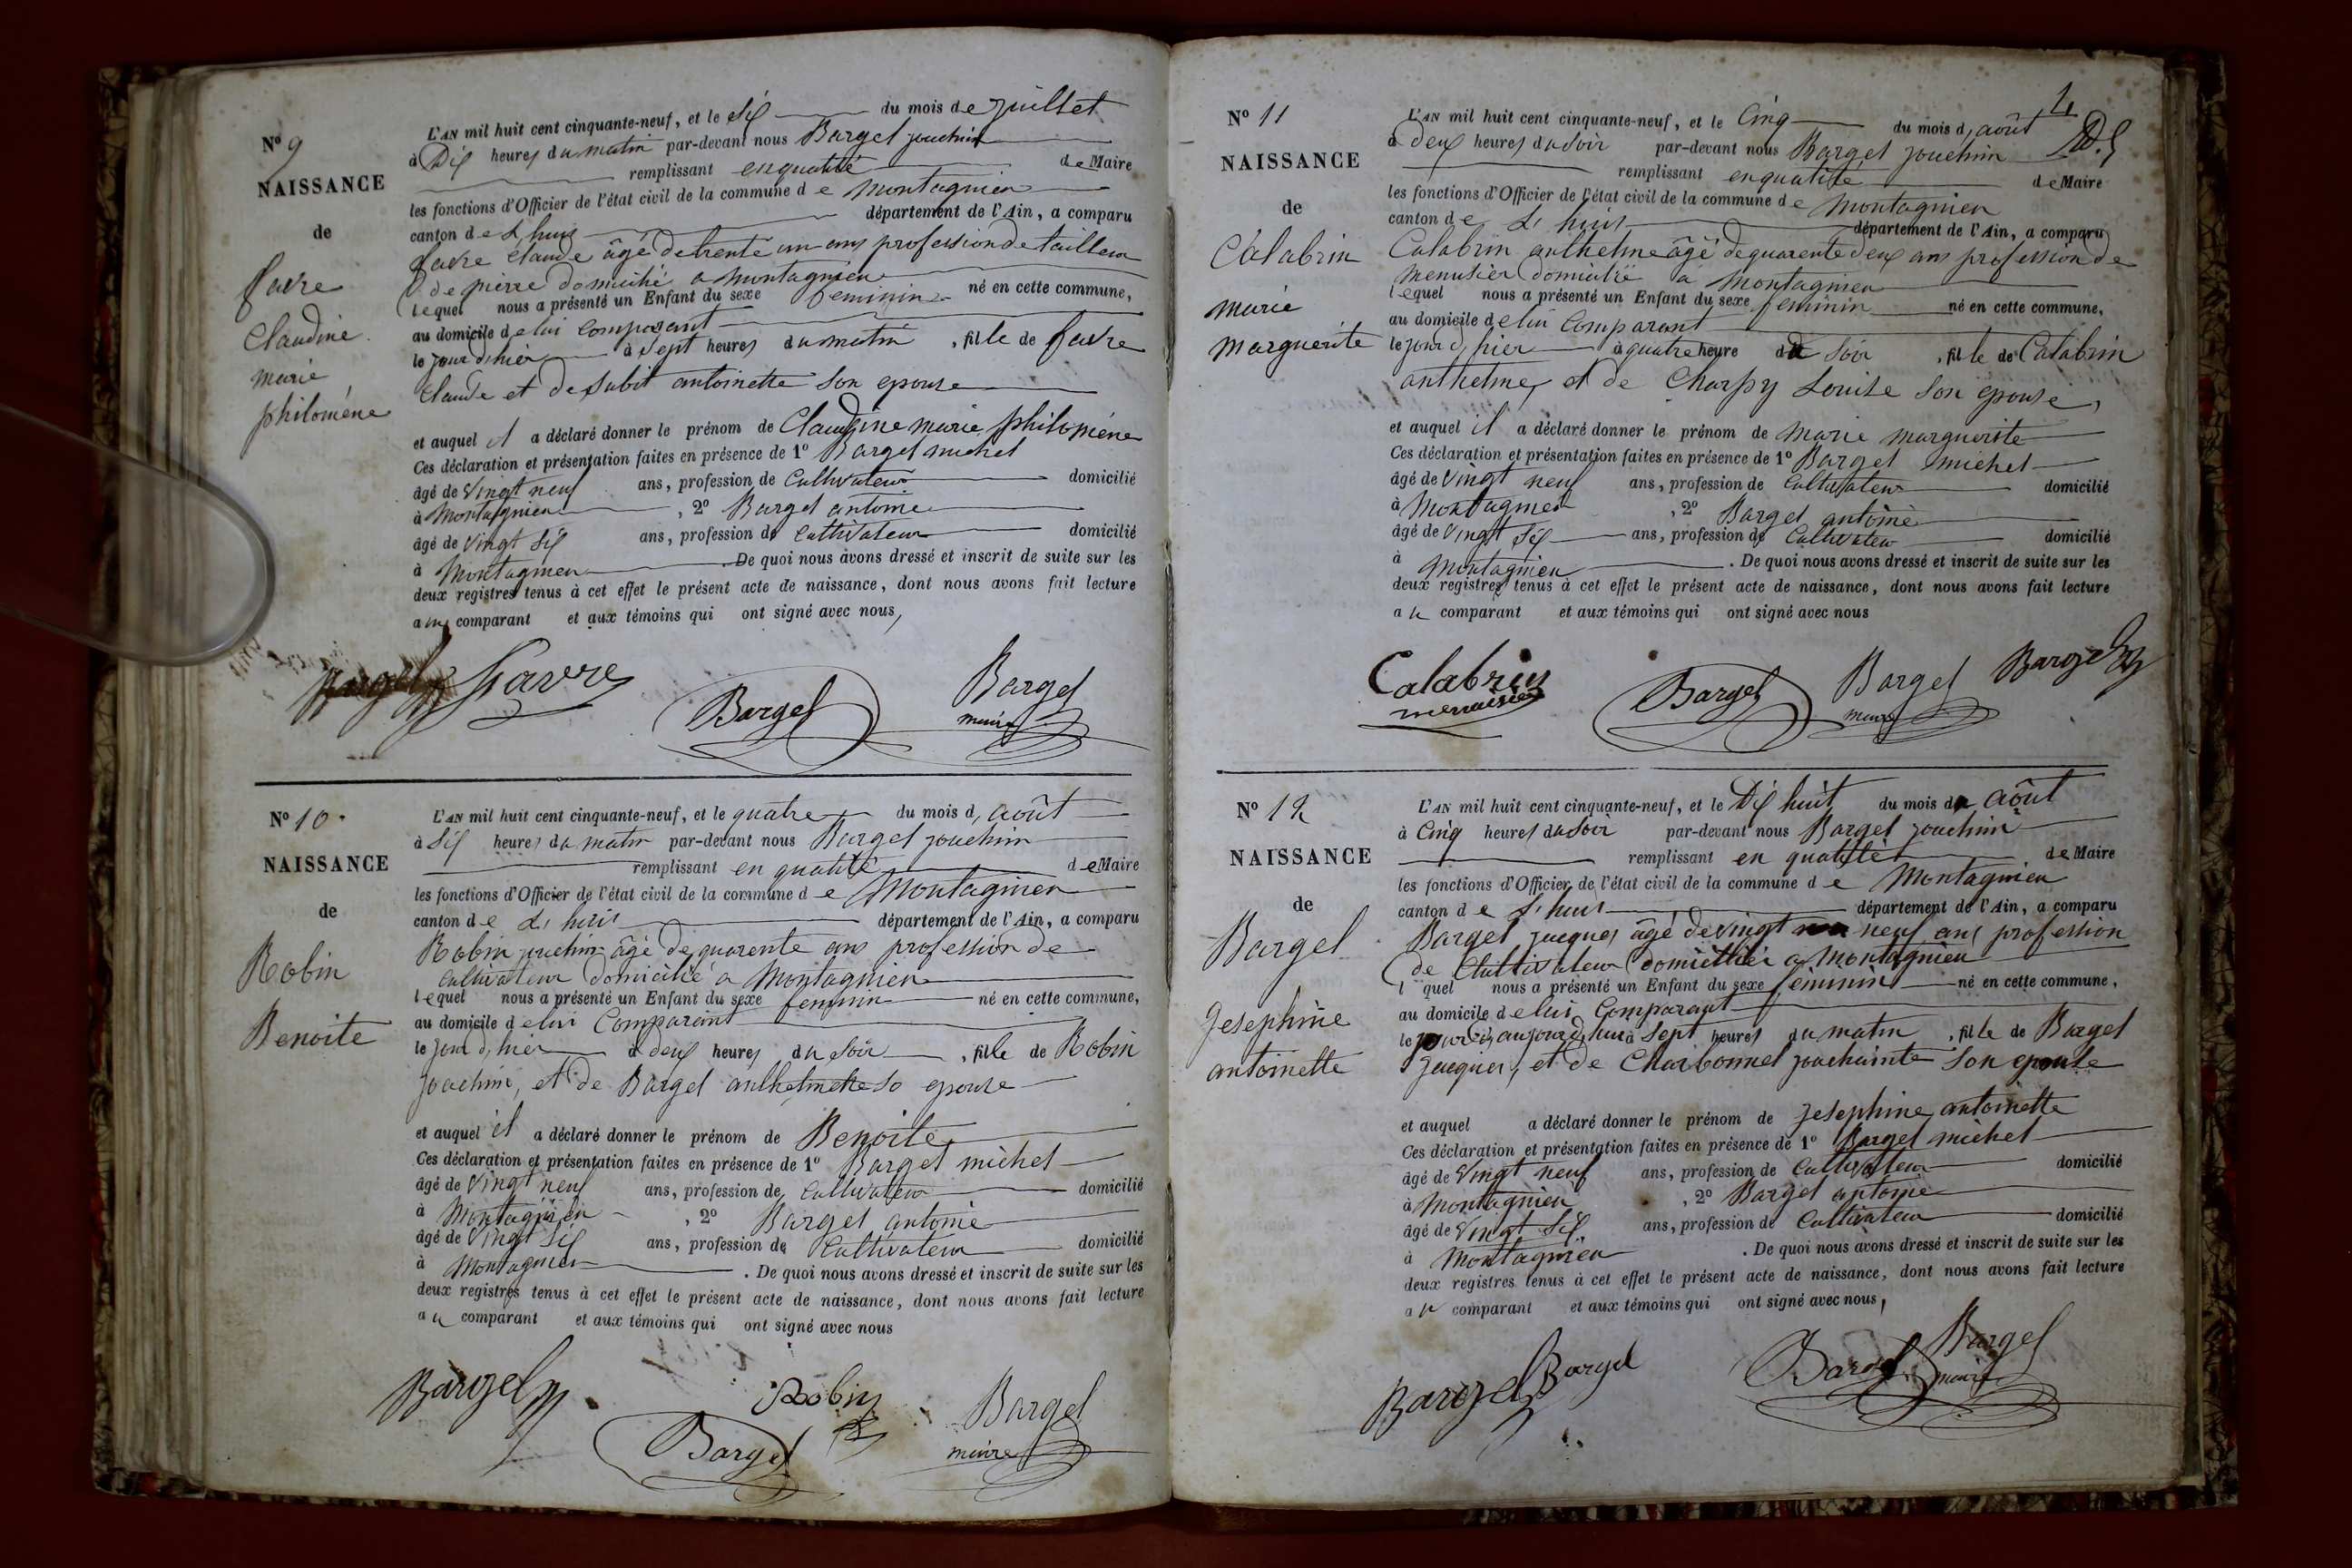 N° 9
NAISSANCE
de
favre
Claudine
marie
philoméne
L'AN mil huit cent cinquante-neuf, et le Six du mois de juillet
à Dix heures du matin par-devant nous Bargel jouchin
remplissant enqualité de Maire
les fonctions d'Officier de l'état civil de la commune de Montagnieu
canton de L huis département de l'Ain, a comparu
favre Claude âgé detrente un ans profession de tailleur
de pierre domicilié a montagnieu
Lequel nous a présenté un Enfant du sexe feminin né en cette commune,
au domicile de lui Comparant
le jour d'hier à Sept heures du matin, fille de favre
Claude et de Subit antoinette Son epouse
et auquel il a déclaré donner le prénom de Claudine marie philoméne
Ces déclaration et présentation faites en présence de 1° Bargel michel
âgé de Vingt neuf ans, profession de Cultivateur domicilié
à Montagnieu, 2° Bargel antoine
âgé de Vingt Six ans, profession de Cultivateur domicilié
à Montagnieu. De quoi nous avons dressé et inscrit de suite sur les
deux registres tenus à cet effet le présent acte de naissance, dont nous avons fait lecture
au comparant et aux témoins qui ont signé avec nous,
Bargel Favre Bargel Bargel
maire
N° 10.
NAISSANCE
de
Robin
Benoite
L'AN mil huit cent cinquante-neuf, et le quatre du mois d, août
à Six heures du matin par-devant nous Bargel jouchin
remplissant en qualité de Maire
les fonctions d'Officier de l'état civil de la commune de Montagnieu
canton de L, huis département de l'Ain, a comparu
Robin jouchin âgé de quarente ans profession de
cultivateur domicilié a Montagnieu
lequel nous a présenté un Enfant du sexe feminin né en cette commune,
au domicile de lui Comparant
le jour d, hier à deux heures du Soir, fille de Robin
joachin, et de Bargel anthelmette so epouse
et auquel il a déclaré donner le prénom de Benoite
Ces déclaration et présentation faites en présence de 1° Bargel michel
âgé de Vingt neuf ans, profession de Cultivateur domicilié
à Montagnieu, 2° Bargel antoine
âgé de Vingt Six ans, profession de Cultivateur domicilié
à Montagnieu. De quoi nous avons dressé et inscrit de suite sur les
deux registres tenus à cet effet le présent acte de naissance, dont nous avons fait lecture
au comparant et aux témoins qui ont signé avec nous
Bargel Robin Bargel
Bargel maire
N° 11
NAISSANCE
de
Calabrin
marie
marguerite
L'AN mil huit cent cinquante-neuf, et le Cinq du mois d, août
à deux heures du Soir par-devant nous Bargel jouchin
remplissant enqualité de Maire
les fonctions d'Officier de l'état civil de la commune de Montagnieu
canton de L, huis département de l'Ain, a comparu
Calabrin anthelme âgé dequarente deux ans profession de
menusier domicilié a Montagnieu
lequel nous a présenté un Enfant du sexe feminin né en cette commune,
au domicile de lui Comparant
le jour d, hier à quatre heure du Soir, fille de Calabrin
anthelme, et de Charpy Louise Son epouse,
et auquel il a déclaré donner le prénom de Marie marguerite
Ces déclaration et présentation faites en présence de 1° Bargel michel
âgé de Vingt neuf ans, profession de Cultivateur domicilié
à Montagnieu, 2° Bargel antoine
âgé de Vingt Six ans, profession de Cultivateur domicilié
à Montagnieu. De quoi nous avons dressé et inscrit de suite sur les
deux registres tenus à cet effet le présent acte de naissance, dont nous avons fait lecture
au comparant et aux témoins qui ont signé avec nous
Calabrin Bargel Bargel Bargel
menuisier maire
N° 12
NAISSANCE
de
Bargel
Josephine
antoinette
L'AN mil huit cent cinquante-neuf, et le Dix huit du mois d, août
à Cinq heures du Soir par-devant nous Bargel jouchin
remplissant en qualité de Maire
les fonctions d'Officier de l'état civil de la commune de Montagnieu
canton de L, huis département de l'Ain, a comparu
Bargel jacques âgé de vingt neuf ans profession
de Cultivateur domicillié a Montagnieu
l quel nous a présenté un Enfant du sexe feminin né en cette commune,
au domicile de lui Comparant
le jour d, aujourd, hui à Sept heures du matin, fille de Bargel
Jacques, et de Charbonnel jouchainte Son epouse
et auquel a déclaré donner le prénom de Josephine antoinette
Ces déclaration et présentation faites en présence de 1° Bargel michel
âgé de Vingt neuf ans, profession de Cultivateur domicilié
à Montagnieu, 2° Bargel antoine
âgé de Vingt Six ans, profession de Cultivateur domicilié
à Montagnieu. De quoi nous avons dressé et inscrit de suite sur les
deux registres tenus à cet effet le présent acte de naissance, dont nous avons fait lecture
au comparant et aux témoins qui ont signé avec nous,
Bargel Bargel Bargel Bargel
maire